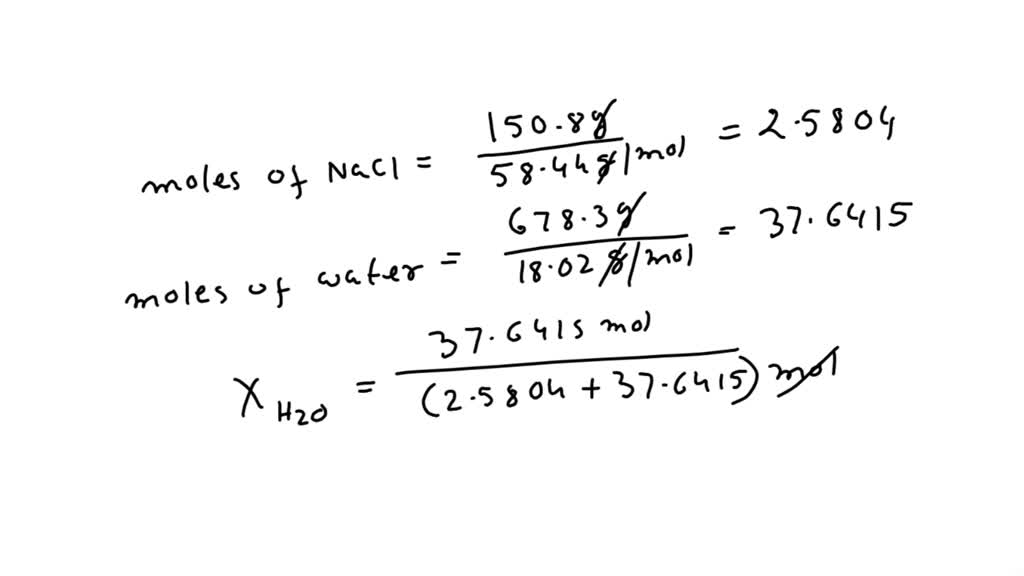 moles of NaCl = 150.8g / 58.44g/mol = 2.5804
moles of water = 678.3g / 18.02g/mol = 37.6415
X H2O = 37.6415 mol / (2.5804 + 37.6415) mol